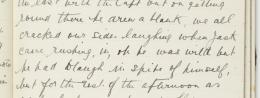 in east with the Capt but on getting
round there he drew a blank, we all
cracked our sides laughing when Jack
came rushing in, oh he was wild but
he had to laugh in spite of himself;
but for the rest of the afternoon as